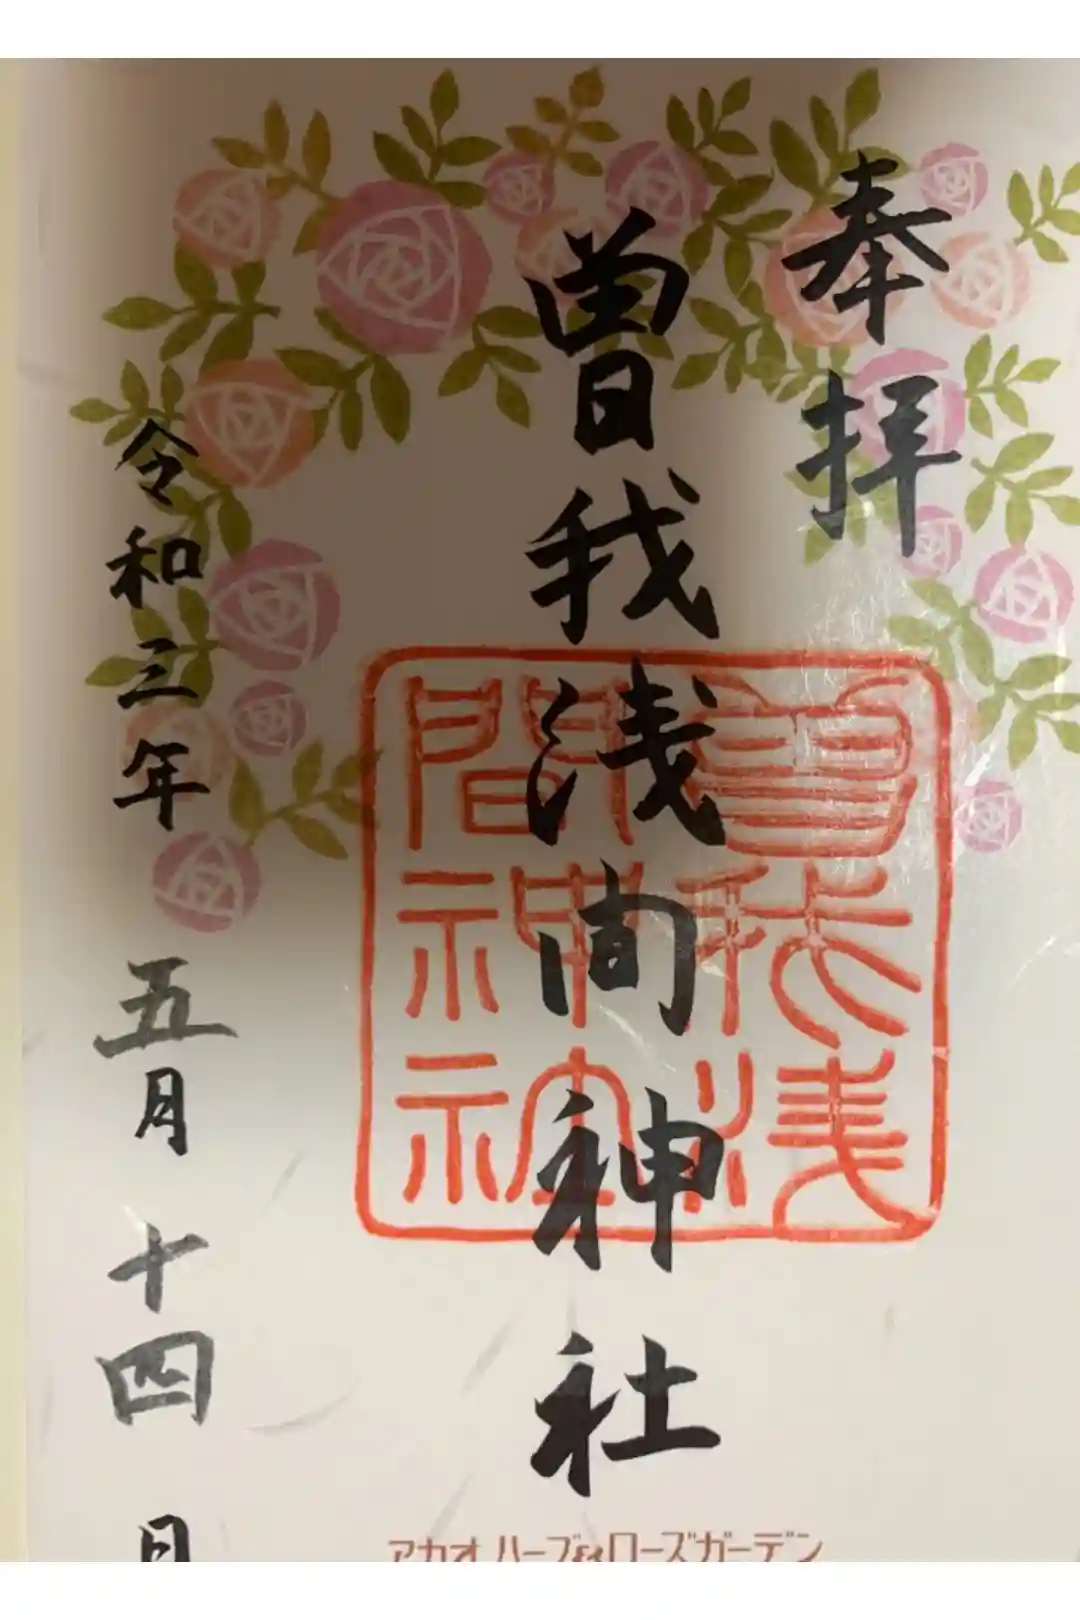 奉拝
曽我浅间神社
曽我浅
間神社
令和三年五月十四日
アカオハーブ&ローズガーデン